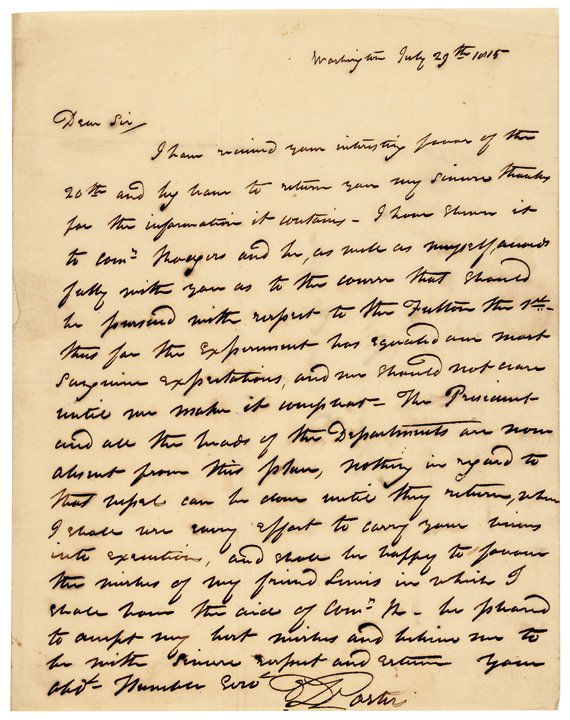 Washington July 29th 1815
Dear Sir,
I have received your interesting favor of the
20th and beg leave to return you my sincere thanks
for the information it contains - I have shewn it
to Comr. Rodgers and he, as well as myself, accords
fully with you as to the course that should
be pursued with respect to the Fulton the 1st. -
thus far the Experiment has equaled our most
Sanguine expectations, and we should not cease
until we make it compleat - The President
and all the heads of the Departments are now
absent from this place, nothing in regard to
that vessel can be done until they return, when
I shall use every effort to carry your views
into execution, and shall be happy to favour
the wishes of my friend Lewis in which I
shall have the aid of Comr. R - be pleased
to accept my best wishes and believe me to
be with sincere respect and esteem your
obdt. Humber Servt.
D Porter